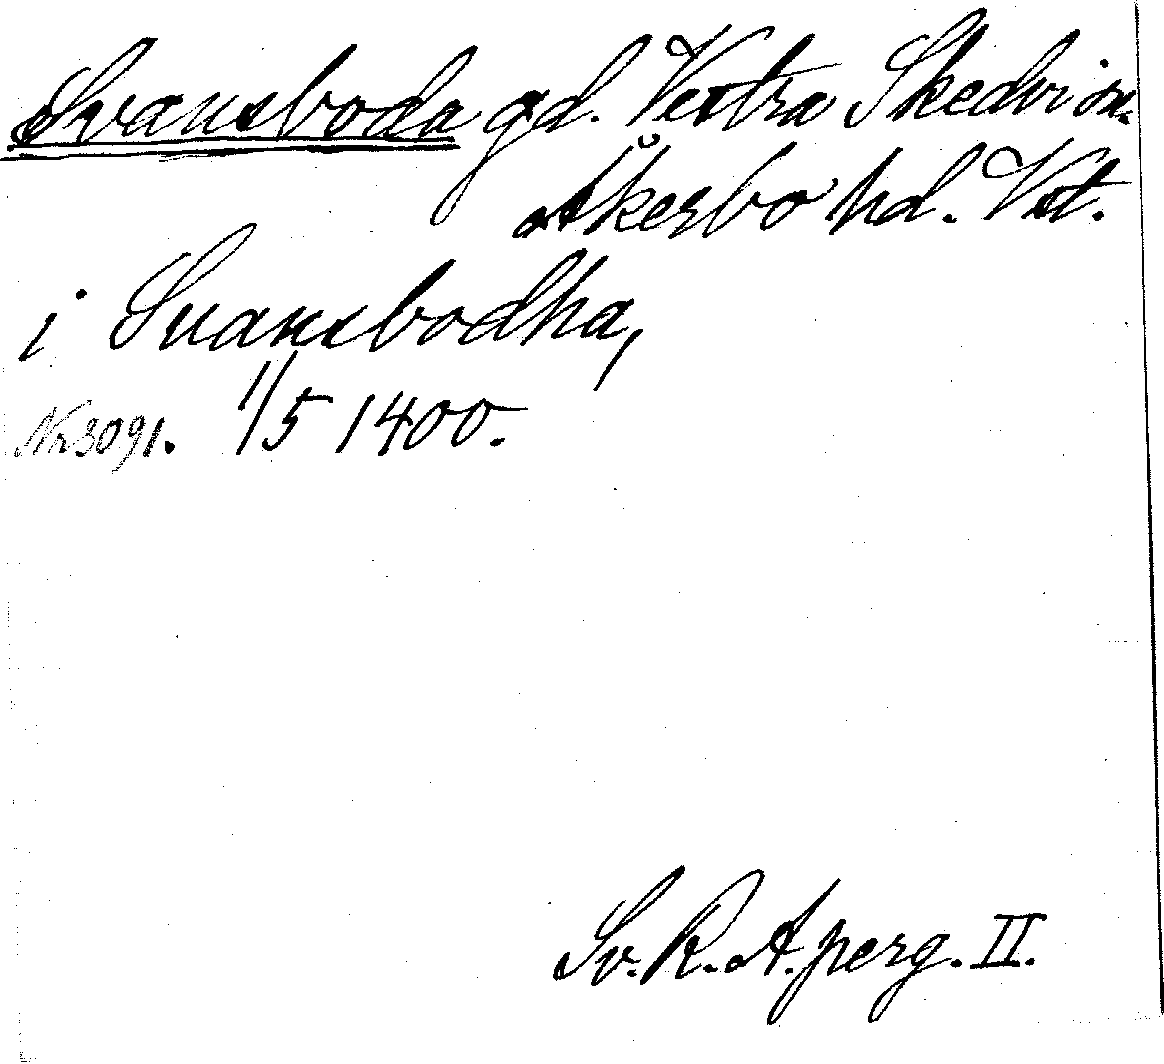 Svansboda gd. Vestra Skedvi sn.
Åkerbo hd. Vst.
i Suansbodha,
Nr 3091. 1/5 1400.
Sv. R. A. perg. II.